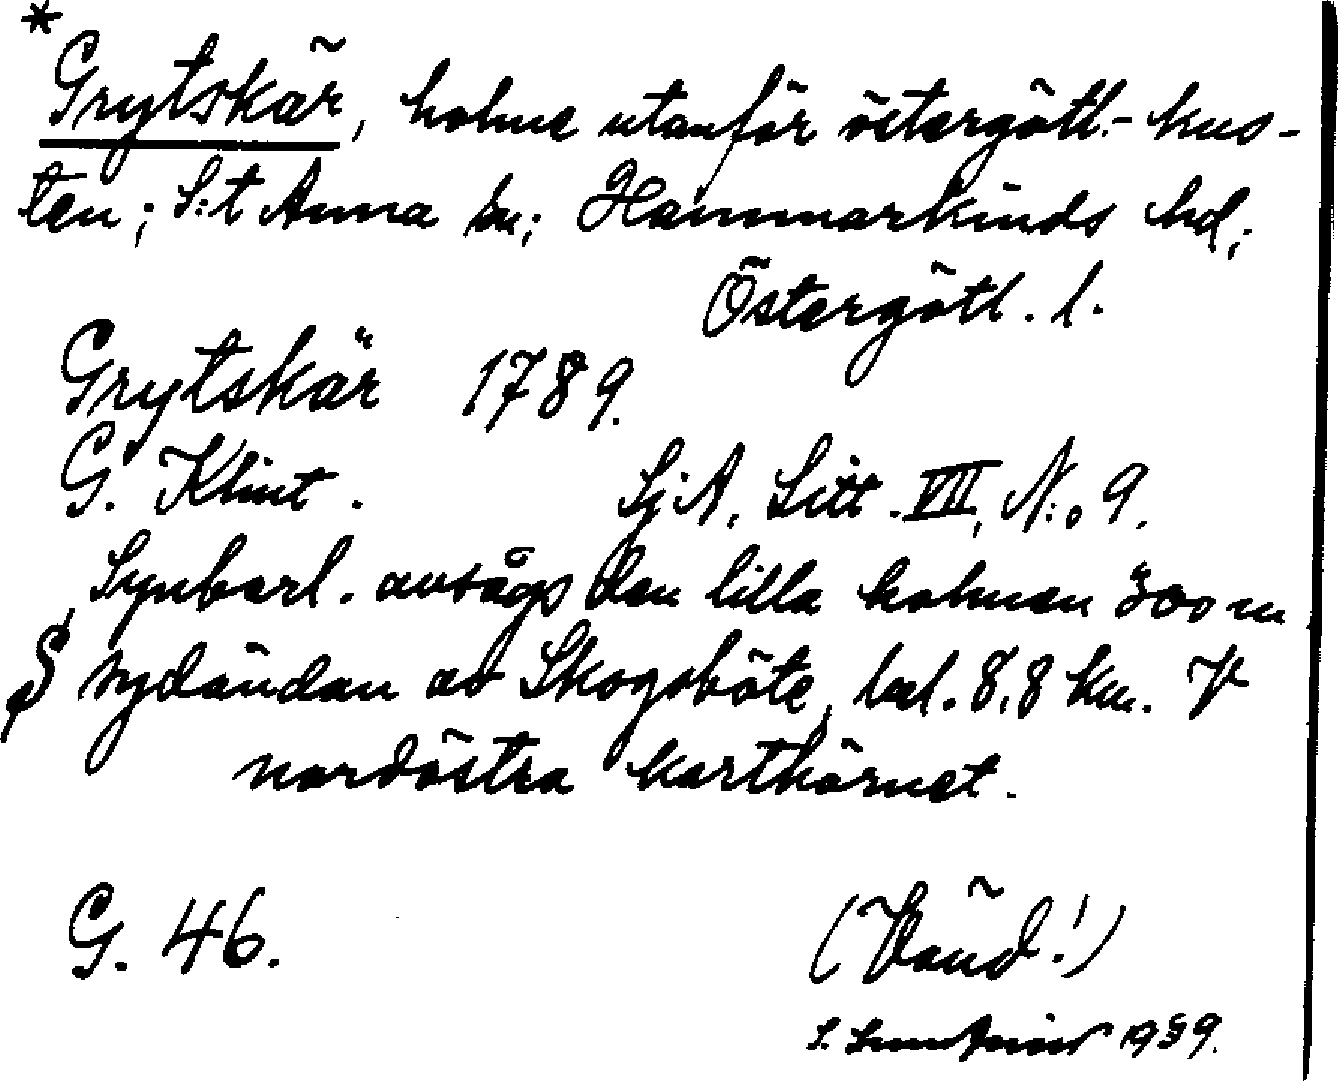 *
Grytskär, holme utanför östergötl.- kus-
ten; S:t Anna sn; Hammarkinds hd;
Östergötl. l.
Grytskär 1789.
G. Klint. SjA, Litt. VII, N:o 9.
Synbarl. avsågs den lilla holmen 300 m
S sydändan av Skogsböte, bel. 8,8 km. V
nordöstra karthörnet.
G. 46.
(Vänd!)
S. 1939.